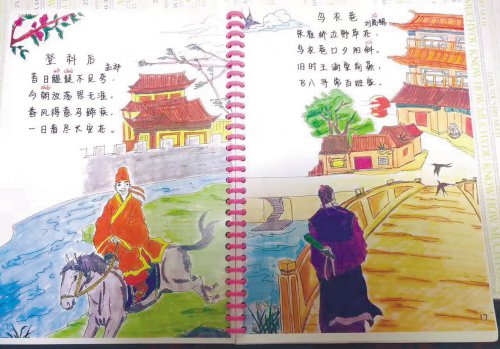 登科后
孟郊
昔日龌龊不足夸，
今朝放荡思无涯。
春风得意马蹄疾，
一日看尽长安花。
乌衣巷
刘禹锡
朱雀桥边野草花，
乌衣巷口夕阳斜。
旧时王谢堂前燕，
飞入寻常百姓家。
17